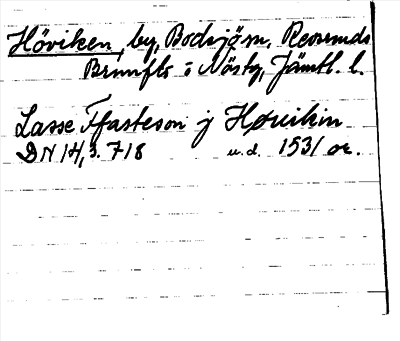 Höviken, by, Bodsjö sn, Revsunds
Brunflo o Näsk tg, Jämtl. l.
Lasse Ffasteson j Høuikin
DN 14, s. 718 u.d. 1531 or.